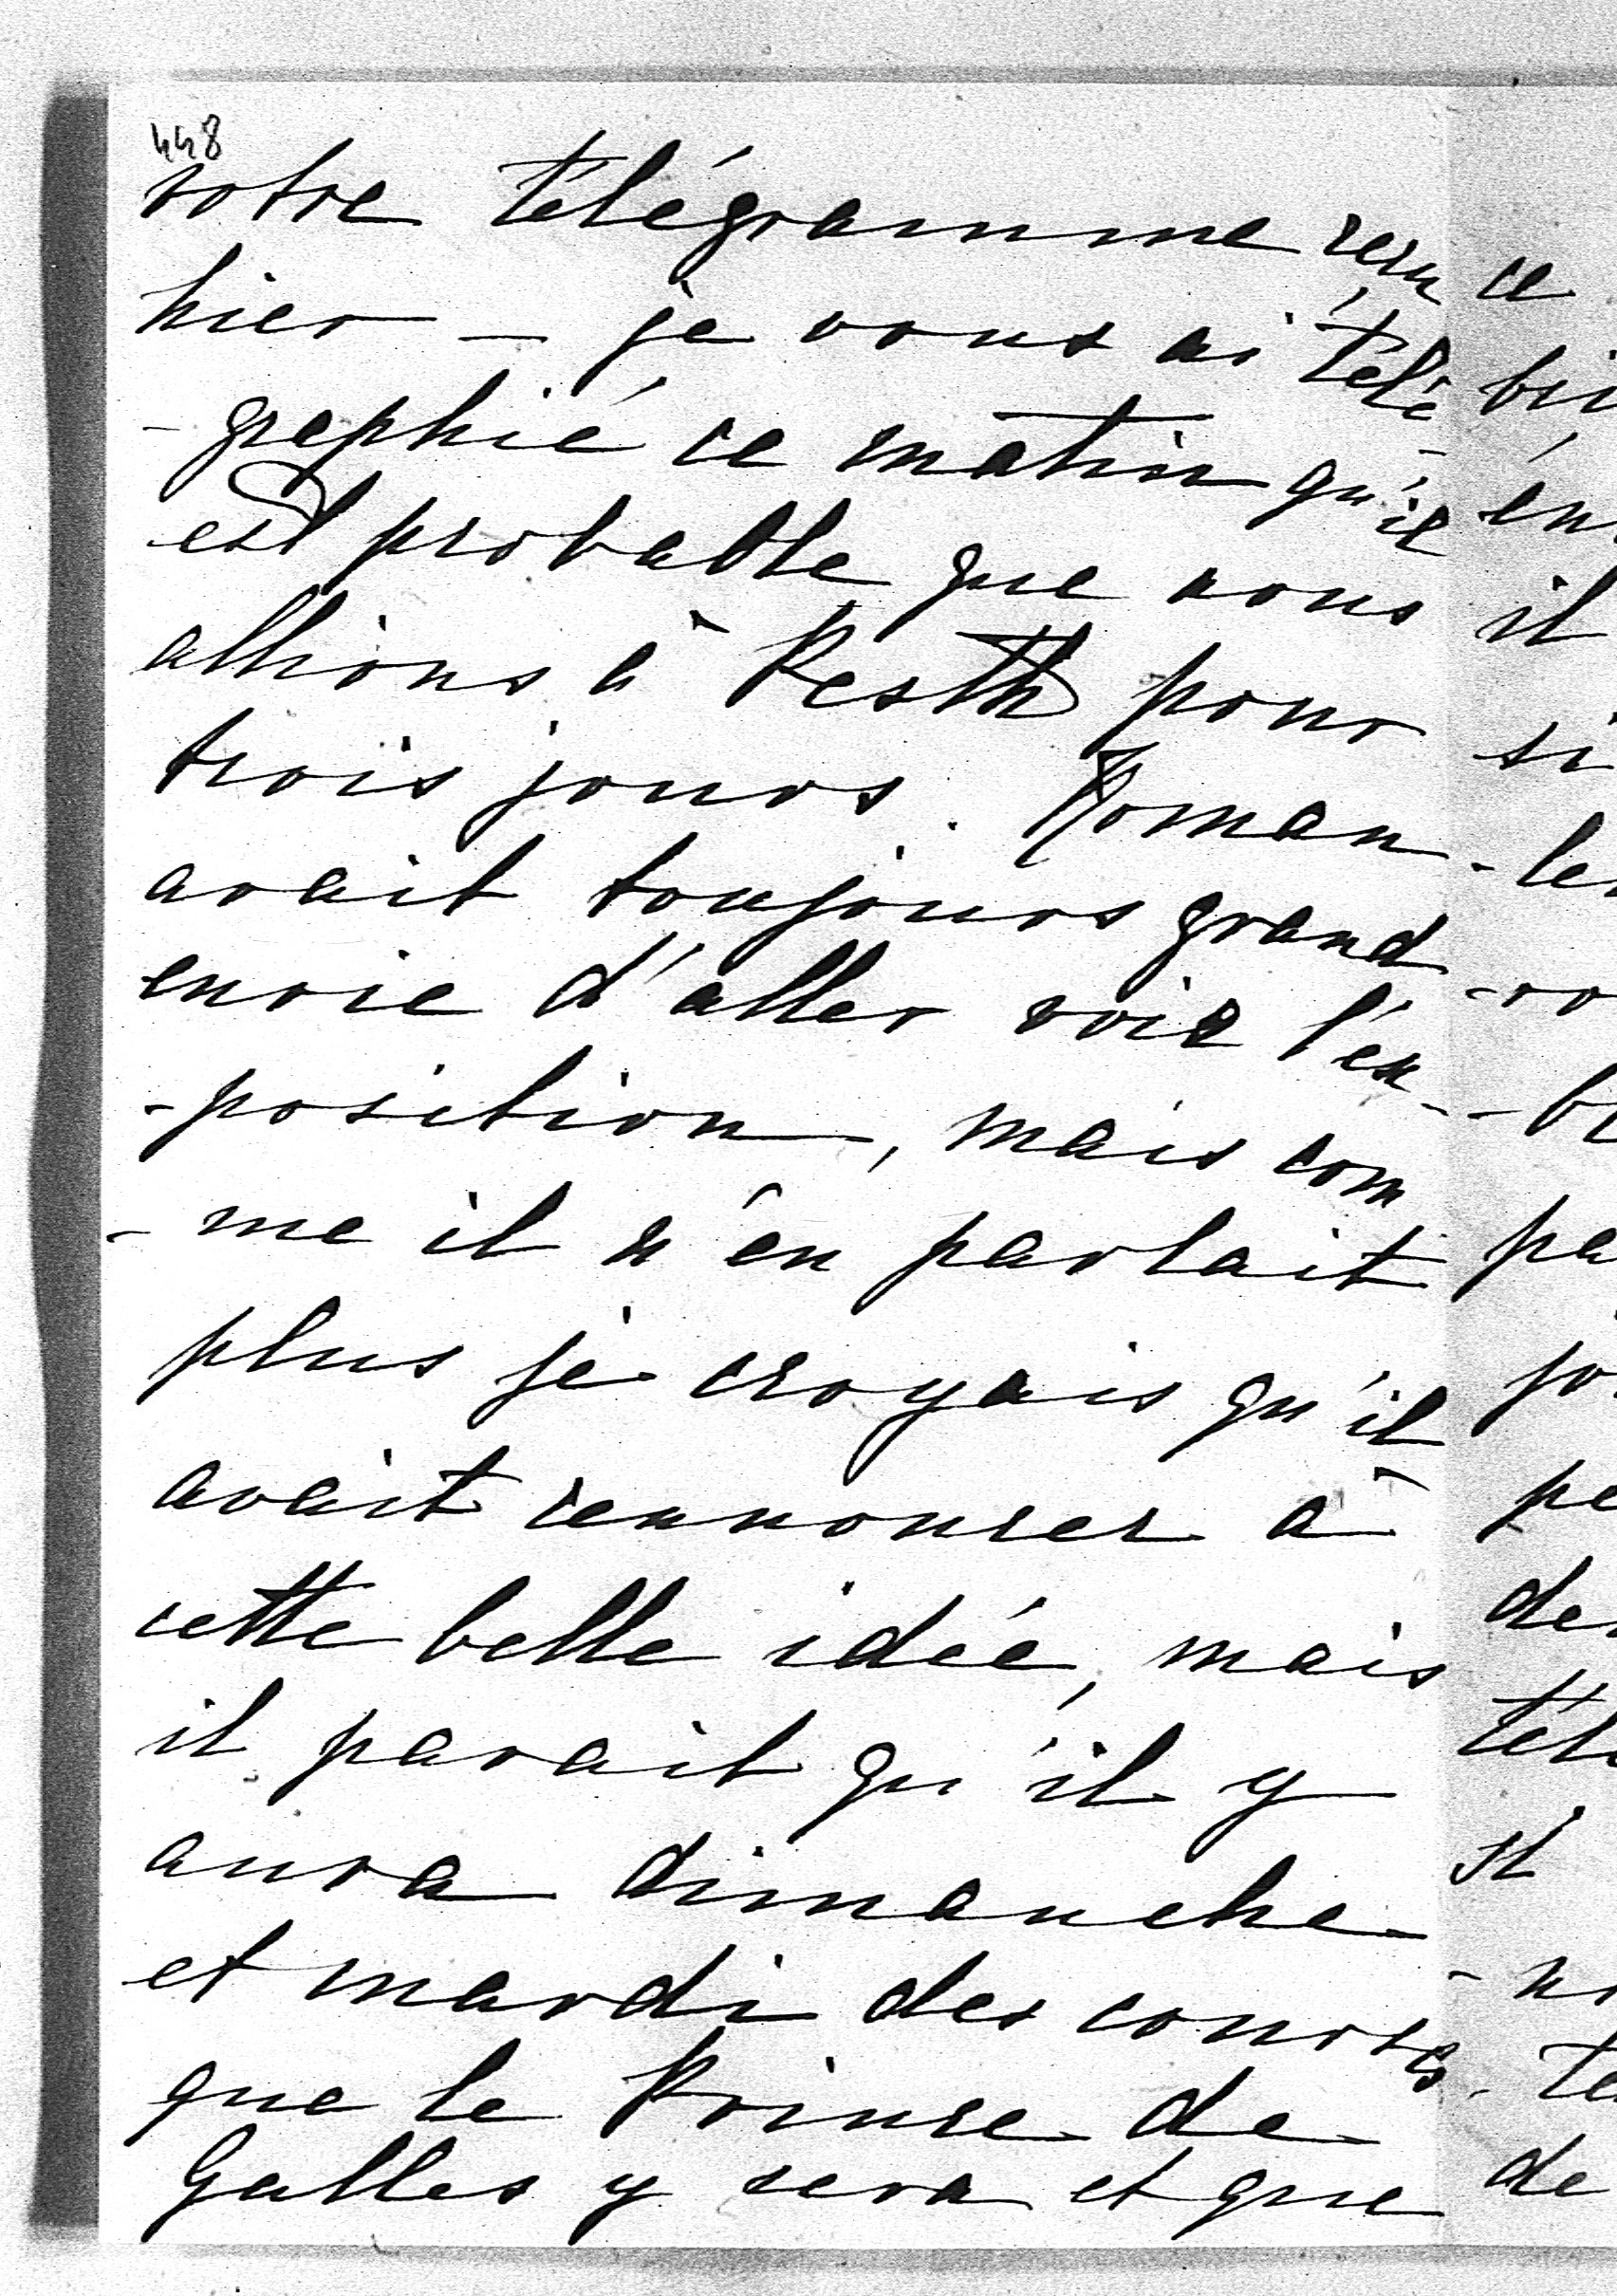 448
votre télégramme reçu
hier – je vous ai télé-
-graphié ce matin qu'il
est probable que nous
allions à Pesth pour
trois jours. Roman
avait toujours grand
envie d'aller voir l'ex-
-position, mais com
-me il n'en parlait
plus je croyais qu'il
avait rennoncer à
cette belle idée, mais
il parait qu'il y
aura dimanche
et mardi des courses
que le Prince de
Galles y sera et que